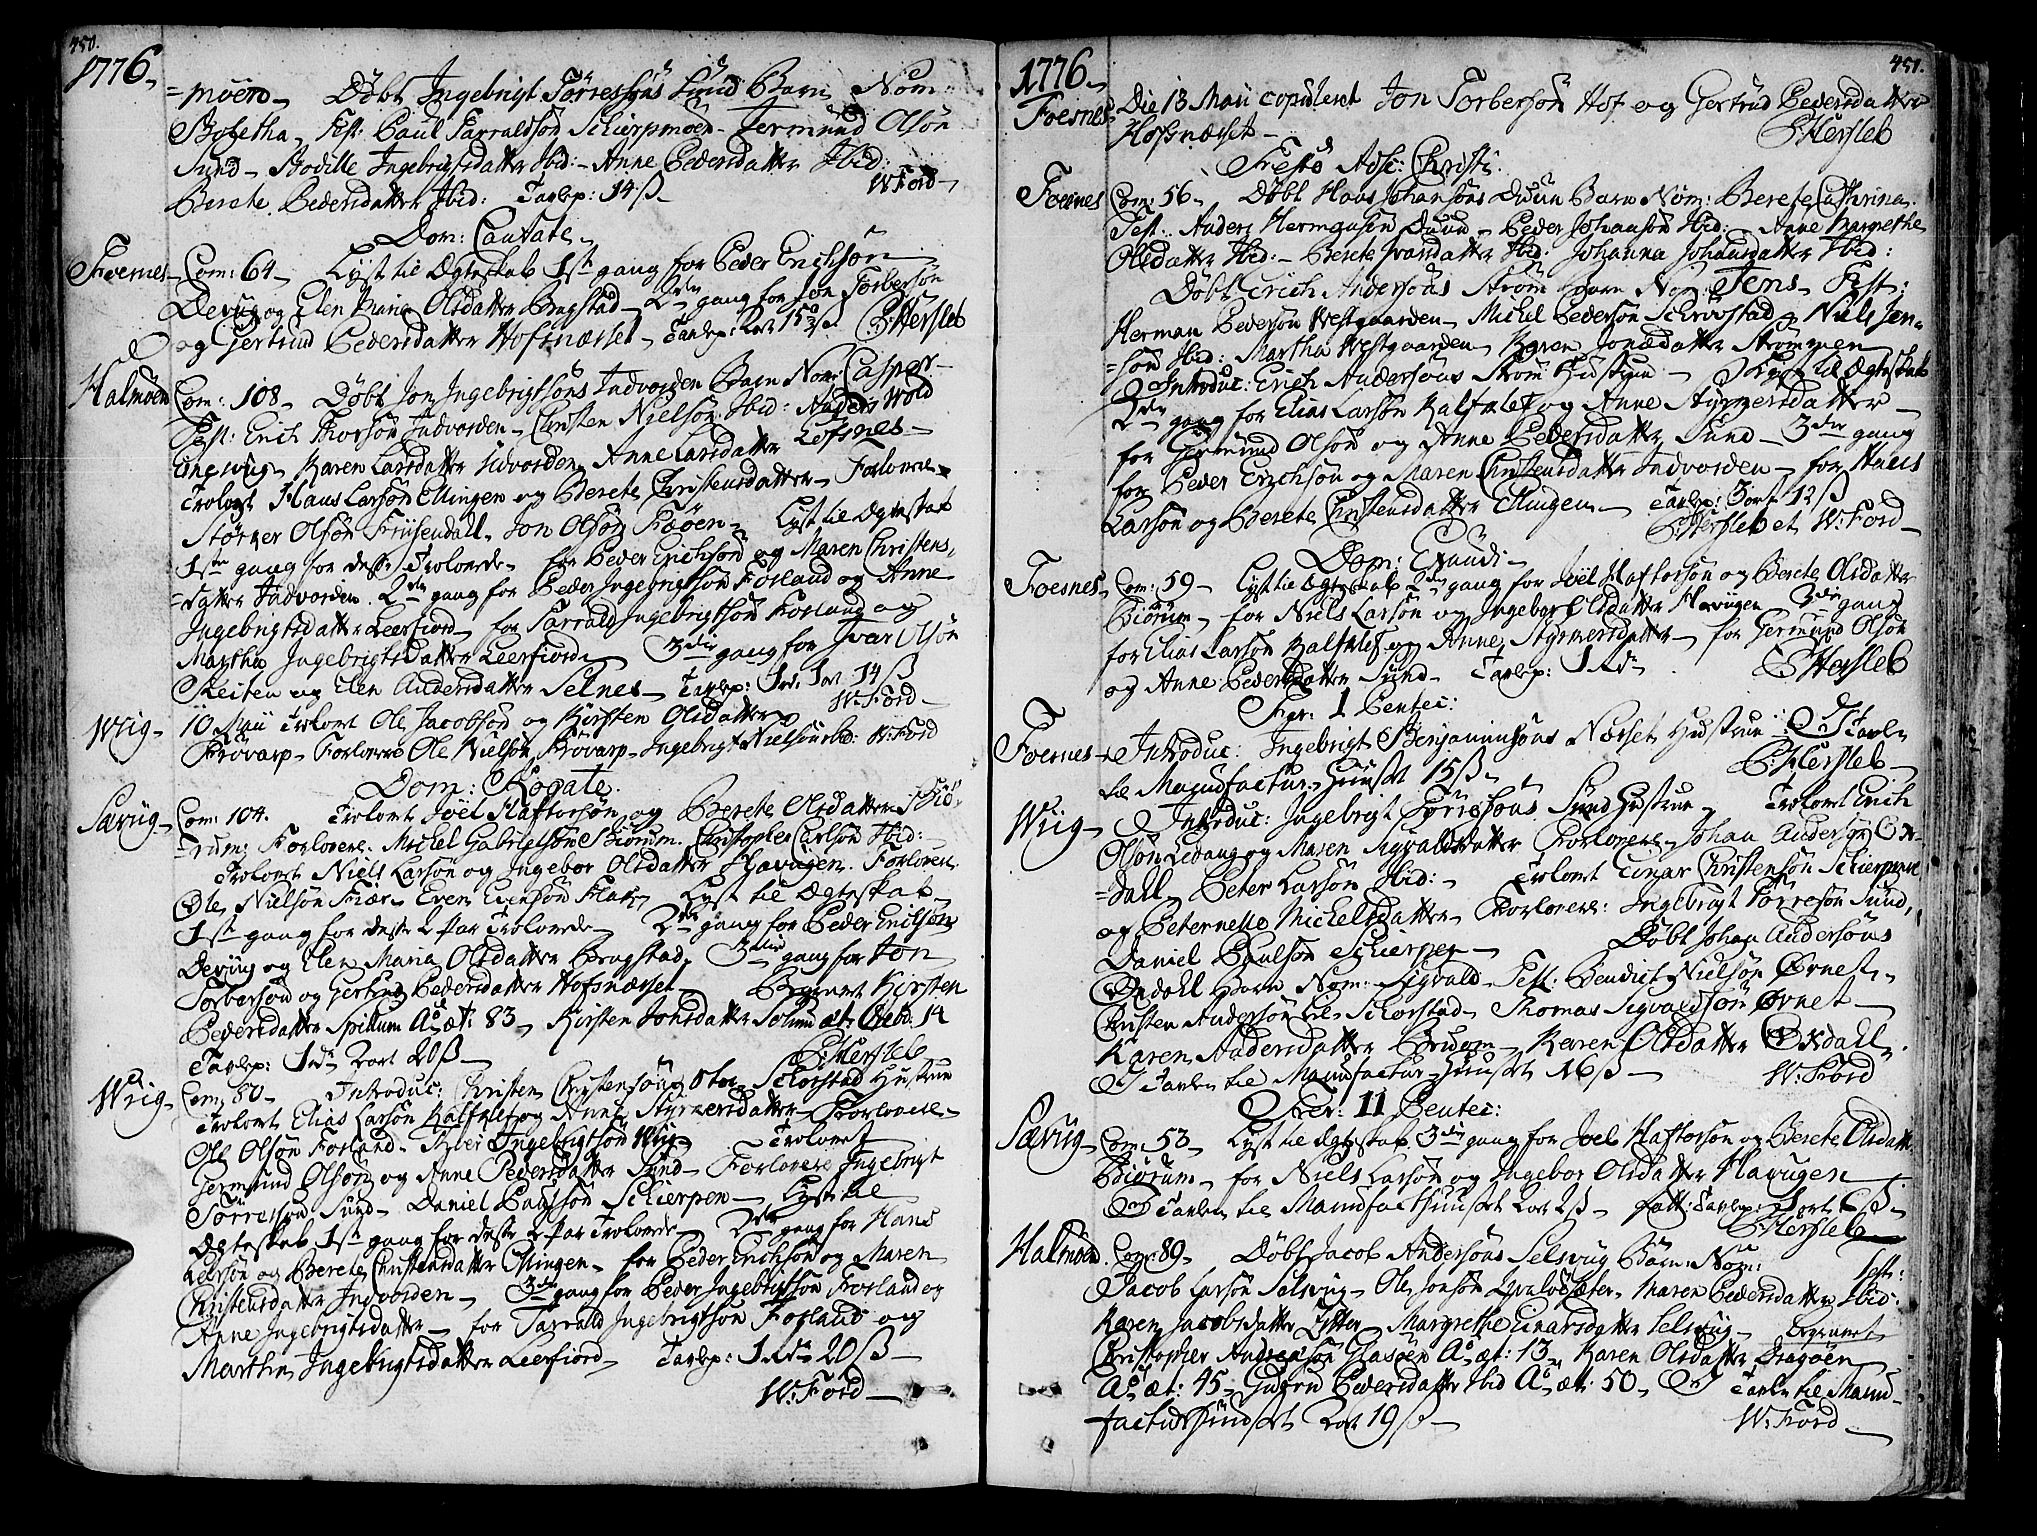 450.
1776.
=moen. Döbt Ingebrigt Törresöns Sund Barn Nom:
Boletha. Test: Paul Tarraldsön Schierpmoen. Jermund Olsön
Sund. Bodille Ingebrigtsdatter Ibid: Anne Pedersdatter Ibid:
Berete Pedersdatter Ibid: Tavlep: 14 ß W: Ford
Dom: Cantate.
Foesnes Com: 64. Lyst til Ægteskab 1ste gang for Peder Erichsön
Devug og Elen Maria Olsdatter Brugstad. 2den gang for Jon Torbersön
og Gertrud Pedersdatter Hofsnæsset. Tavlep: 15 ß P: Hersleb
Halmöen Com: 108. Döbt Jon Ingebrigtsöns Indvorden Barn Nom: Casper
Test: Erich Thorsön Indvorden. Christen Nielsön Ibid: Anders Wold
Karen Larsdatter Indvorden. Anne Larsdatter Lofsnes.
Trolovet Hans Larsön Ellingen og Berete Christensdatter. Forlovere
Störker Olsön Friisendall. Jon Olsön. Lyst til Ægteskab
1ste gang for dette Trolovede. for Peder Erichsön og Maren Christens,
=datter Indvorden. 2den gang for Peder Ingebrigtsön Forland og Anne
Ingebrigtsdatter Leerfiord. for Tarrald Ingebrigtsön Forland og
Martha Ingebrigtsdatter Leerfiord. 3die gang for Ivar Olsön
Reiten og Elen Andersdatter Selnes. Tavlep: 1 rd. 1 ort 14 ß
W: Ford
Wiig 10 Maii Trolovet Ole Jacobsön og Kirsten Olsdatter
Forlovere Ole Nielsön. Ingebrigt Nielsön Ibid: W: Ford
Dom: Rogate.
Sævig Com: 104. Trolovet Joel Haftorsön og Berete Olsdatter Biö
=rum: Forlovere: Michel Gabrielsön Biörum. Christopher Carlsön Ibid:
Trolovet Niels Larsön og Ingebor Olsdatter Havugen. Forlovere
Ole Nielsön Fiær. Even Evensön Flat. Lyst til Ægteskab
1ste gang for disse 2 Par Trolovede. 2den gang for Peder Erichsön
Devug og Elen Maria Olsdatter Brugstad. 3die gang for Jon
Torbersön og Gertrud Pedersdatter Hofsnæsset. Begravet Kirsten
Pedersdatter Spillum Ao æt: 83. Kirsten Jonsdatter Solum æt: 14
Tavlep: 1 rd 2 ort 20 ß P: Hersleb
Wiig Com: 80. Introduc: Christen Christensöns Schorstad Hustrue
Trolovet Elias Larsön Kalfklef og Anne Styrmersdatter. Forlovere
Ole Olsön Forland. Ingebrigtsön Wiig. Trolovet
Germund Olsön og Anne Pedersdatter Sund. Forlovere Ingebrigt
Törresön Sund. Daniel Paulsön Schierpen. Lyst til
Ægteskab 1ste gang for disse 2 Par Trolovede. 2den gang for Hans
Larsön og Berete Christensdatter Ellingen. for Peder Erichsön og Maren
Christensdatter Indvorden. 3die gang for Peder Ingebrigtsön Forland og
Anne Ingebrigtsdatter. for Tarrald Ingebrigtsön Forland og
Martha Ingebrigtsdatter Leerfiord. Tavlep: 1 rd 20 ß
W: Ford
451.
1776.
Foesnes Die 13 Maii copuleret Jon Torbersön Hof og Gertrud Pedersdatter
Hofsnæset. P: Hersleb
Festo Asc: Christi.
Foesnes Com: 56. Döbt Hans Johansöns Duun Barn Nom: Berete Cathrina.
Test: Anders Hermansen Duun. Peder Johansön Ibid: Anne Margrethe
Olsdatter Ibid: Berete Ivarsdatter Ibid: Johanna Johansdatter Ibid:
Döbt Erich Andersöns Ström Barn Nom: Jens. Test:
Herman Pedersön Westgaarden. Michel Pedersön Schrostad. Niels Jen=
=sön Ibid: Martha Westgaarden. Karen Jonsdatter Strömmen
Introduc: Erich Andersöns Ström Hustrue. Lyst til Ægteskab
2den gang for Elias Larsön Kalfklef og Anne Styrmersdatter
for Germund Olsön og Anne Pedersdatter Sund. 3die gang
for Peder Erichsön og Maren Christensdatter Indvorden. for Hans
Larsön og Berete Christensdatter Ellingen. Tavlep: 3 ort 12 ß
P: Hersleb et W: Ford
Dom: Exaudi.
Foesnes Com: 59. Lyst til Ægteskab 2den gang for Joel Haftorsön og Berete Olsdatter
Biörum. for Niels Larsön og Ingebor Olsdatter Havugen 3die gang
for Elias Larsön Kalfklef og Anne Styrmersdatter. for Germund Olsön
og Anne Pedersdatter Sund. Tavlep: 1 rd P: Hersleb
Fer: 1 Pentec:
Foesnes Introduc: Ingebrigt Benjaminsöns Nærset Hustrue. I Tavlen
til Manufactur Huuset 15 ß P: Hersleb
Wiig Introduc: Ingebrigt Törresöns Sund Hustrue. Trolovet Erich
Olsön Ledang og Maren Sigvaldsdatter Forlovere Johan Andersön Ox=
=dall. Peter Larsön Ibid: Trolovet Einar Christensön Schierpen
og Peternelle Michelsdatter. Forlovere: Ingebrigt Törresön Sund,
Daniel Paulsön Schierpen. Döbt Johan Andersöns
Oxdahl Barn Nom: Sigvald. Test: Bendict Nielsön Övnet,
Christen Andersön Schorstad. Thomas Sigvaldsön Övnet
Karen Andersdatter. Karen Olsdatter Oxdall.
I Tavlen til Manufactur Huuset 16 ß W: Ford
Fer: 11 Pentec:
Sævig Com: 53. Lyst til Ægteskab 3die gang for Joel Haftorsön og Berete Olsdatt
Biörum. for Niels Larsön og Ingebor Olsdatter Havugen
I Tavlen til Manufact Huuset 2 ort 2 ß. fatt: Tavlep: 1 ort 6 ß
P: Hersleb
Halmöen Com: 89. Döbt Jacob Andersöns Selsvig Barn Nom: Test:
Jacob Larsön Selsvig. Ole Jonsön Qvalvesæter. Maren Pedersdatter Ibid:
Karen Jacobsdatter. Margrethe Einarsdatter Selsvig. Begravet
Christopher Andreasön Glasöen Ao æt: 13. Karen Olsdatter Dragöen
Ao æt: 45. Guren Pedersdatter Ibid Ao æt: 50. I Tavlen til Manu=
factur Huuset 2 ort 19 ß W: Ford